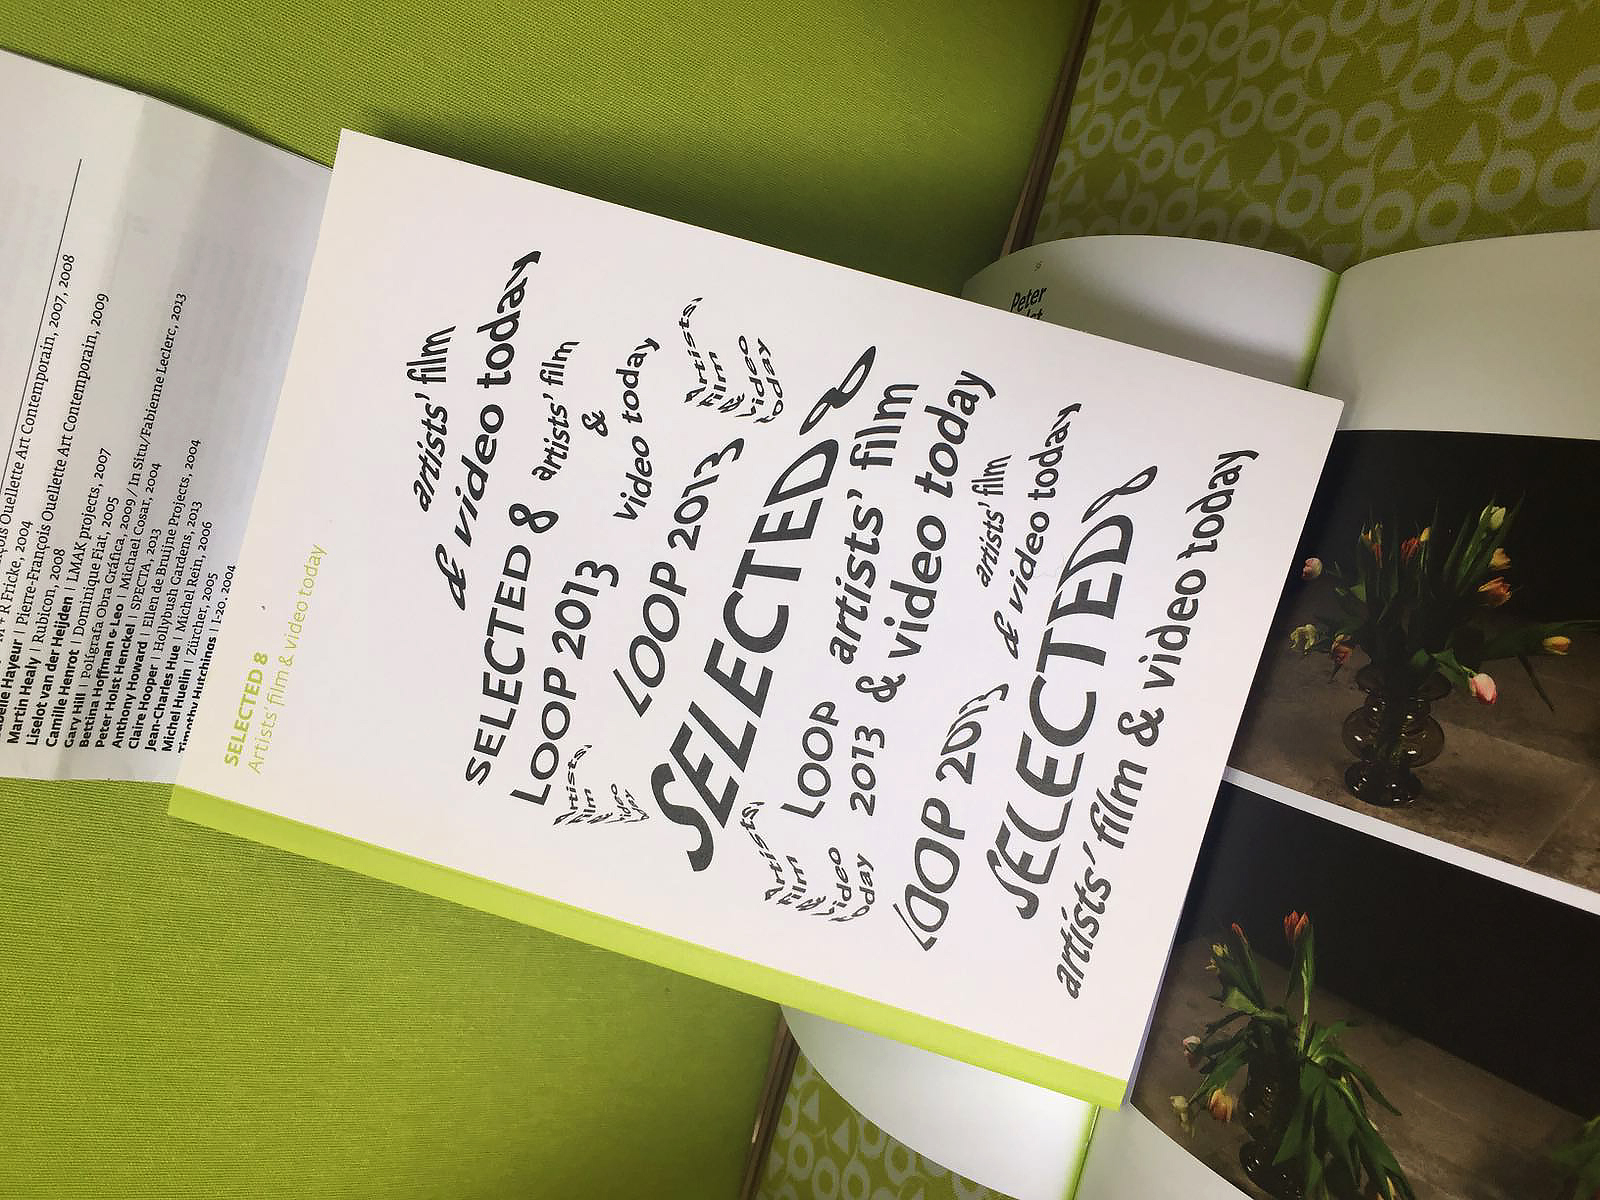 SELECTED 8
Artists' film & video today
artists' film
& video today
SELECTED 8
artists' film
&
video today
LOOP 2013
Artists'
Film
&
Video
today
LOOP 2013
Artists'
Film
&
Video
today
SELECTED 8
LOOP
2013
artists' film
& video today
Artists'
Film
&
Video
today
LOOP 2013
artists' film
& video today
SELECTED 8
artists' film & video today
M + R Fricke, 2004
Hayeur | Pierre-François Ouellette Art Contemporain, 2007, 2008
Martin Healy | Rubicon, 2008
Liselot van der Heijden | LMAK projects, 2007
Camille Henrot | Dominique Fiat, 2005
Gary Hill | Polígrafa Obra Gráfica, 2009 / In Situ/Fabienne Leclerc, 2013
Bettina Hoffman & Leo | Michael Cosar, 2004
Peter Holst Henckel | SPECTA, 2013
Anthony Howard | Ellen de Bruijne Projects, 2004
Claire Hooper | Hollybush Gardens, 2013
Jean-Charles Hue | Michel Rein, 2006
Michel Huelin | Zürcher, 2005
Timothy Hutchings | I-20, 2004
Peter